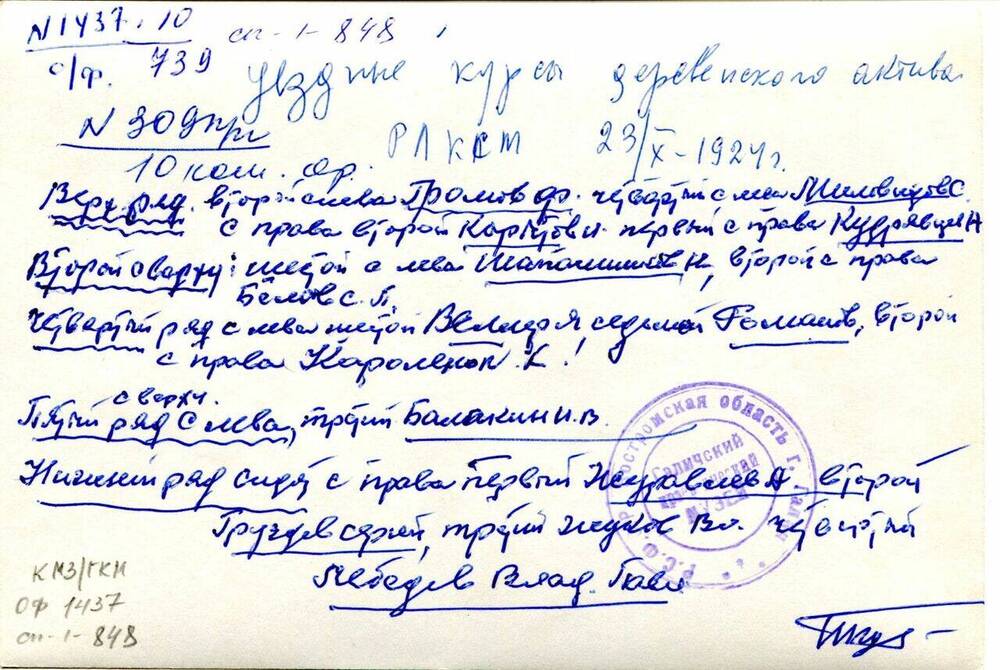 N1437.10 сп-1-848
о/ф. 739 уездные курсы деревенского актива
N 309пр
РЛКСМ 23/X-1924г.
10 ком. ор.
Верх. ряд. второй слева Громов ф. четвертый с лева Миловидов С.
с права второй Карпов и. первый с права Кудрявцев Н
Второй сверху: шестой с лева Шапошников Н, второй с права
Белов С. П.
четвертый ряд с лева шестой седьмой Романов, второй
с права К!
сверху.
Пятый ряд с лева, третий Балакин и. в.
Нижний ряд сидя с права первый Журавлев А. второй
Груздев сергей, третий жуков Вл. четвертый
Лебедев Влад. Павл
Р.С.Ф.С.Р. Костромская область г. Галич
Галичский
краеведческий
музей
КМЗ/ГКМ
ОФ 1437
сп-1-848